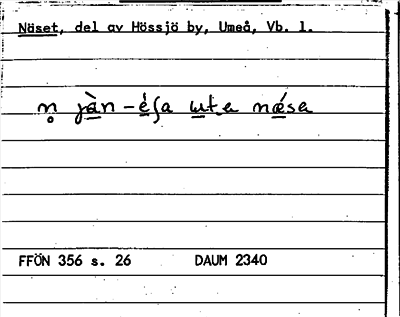 Näset, del av Hössjö by, Umeå, Vb. l.
n̥ jà̱n-é̱ʃa u̱tɐ nǽ̱sɐ
FFÖN 356 s. 26 DAUM 2340